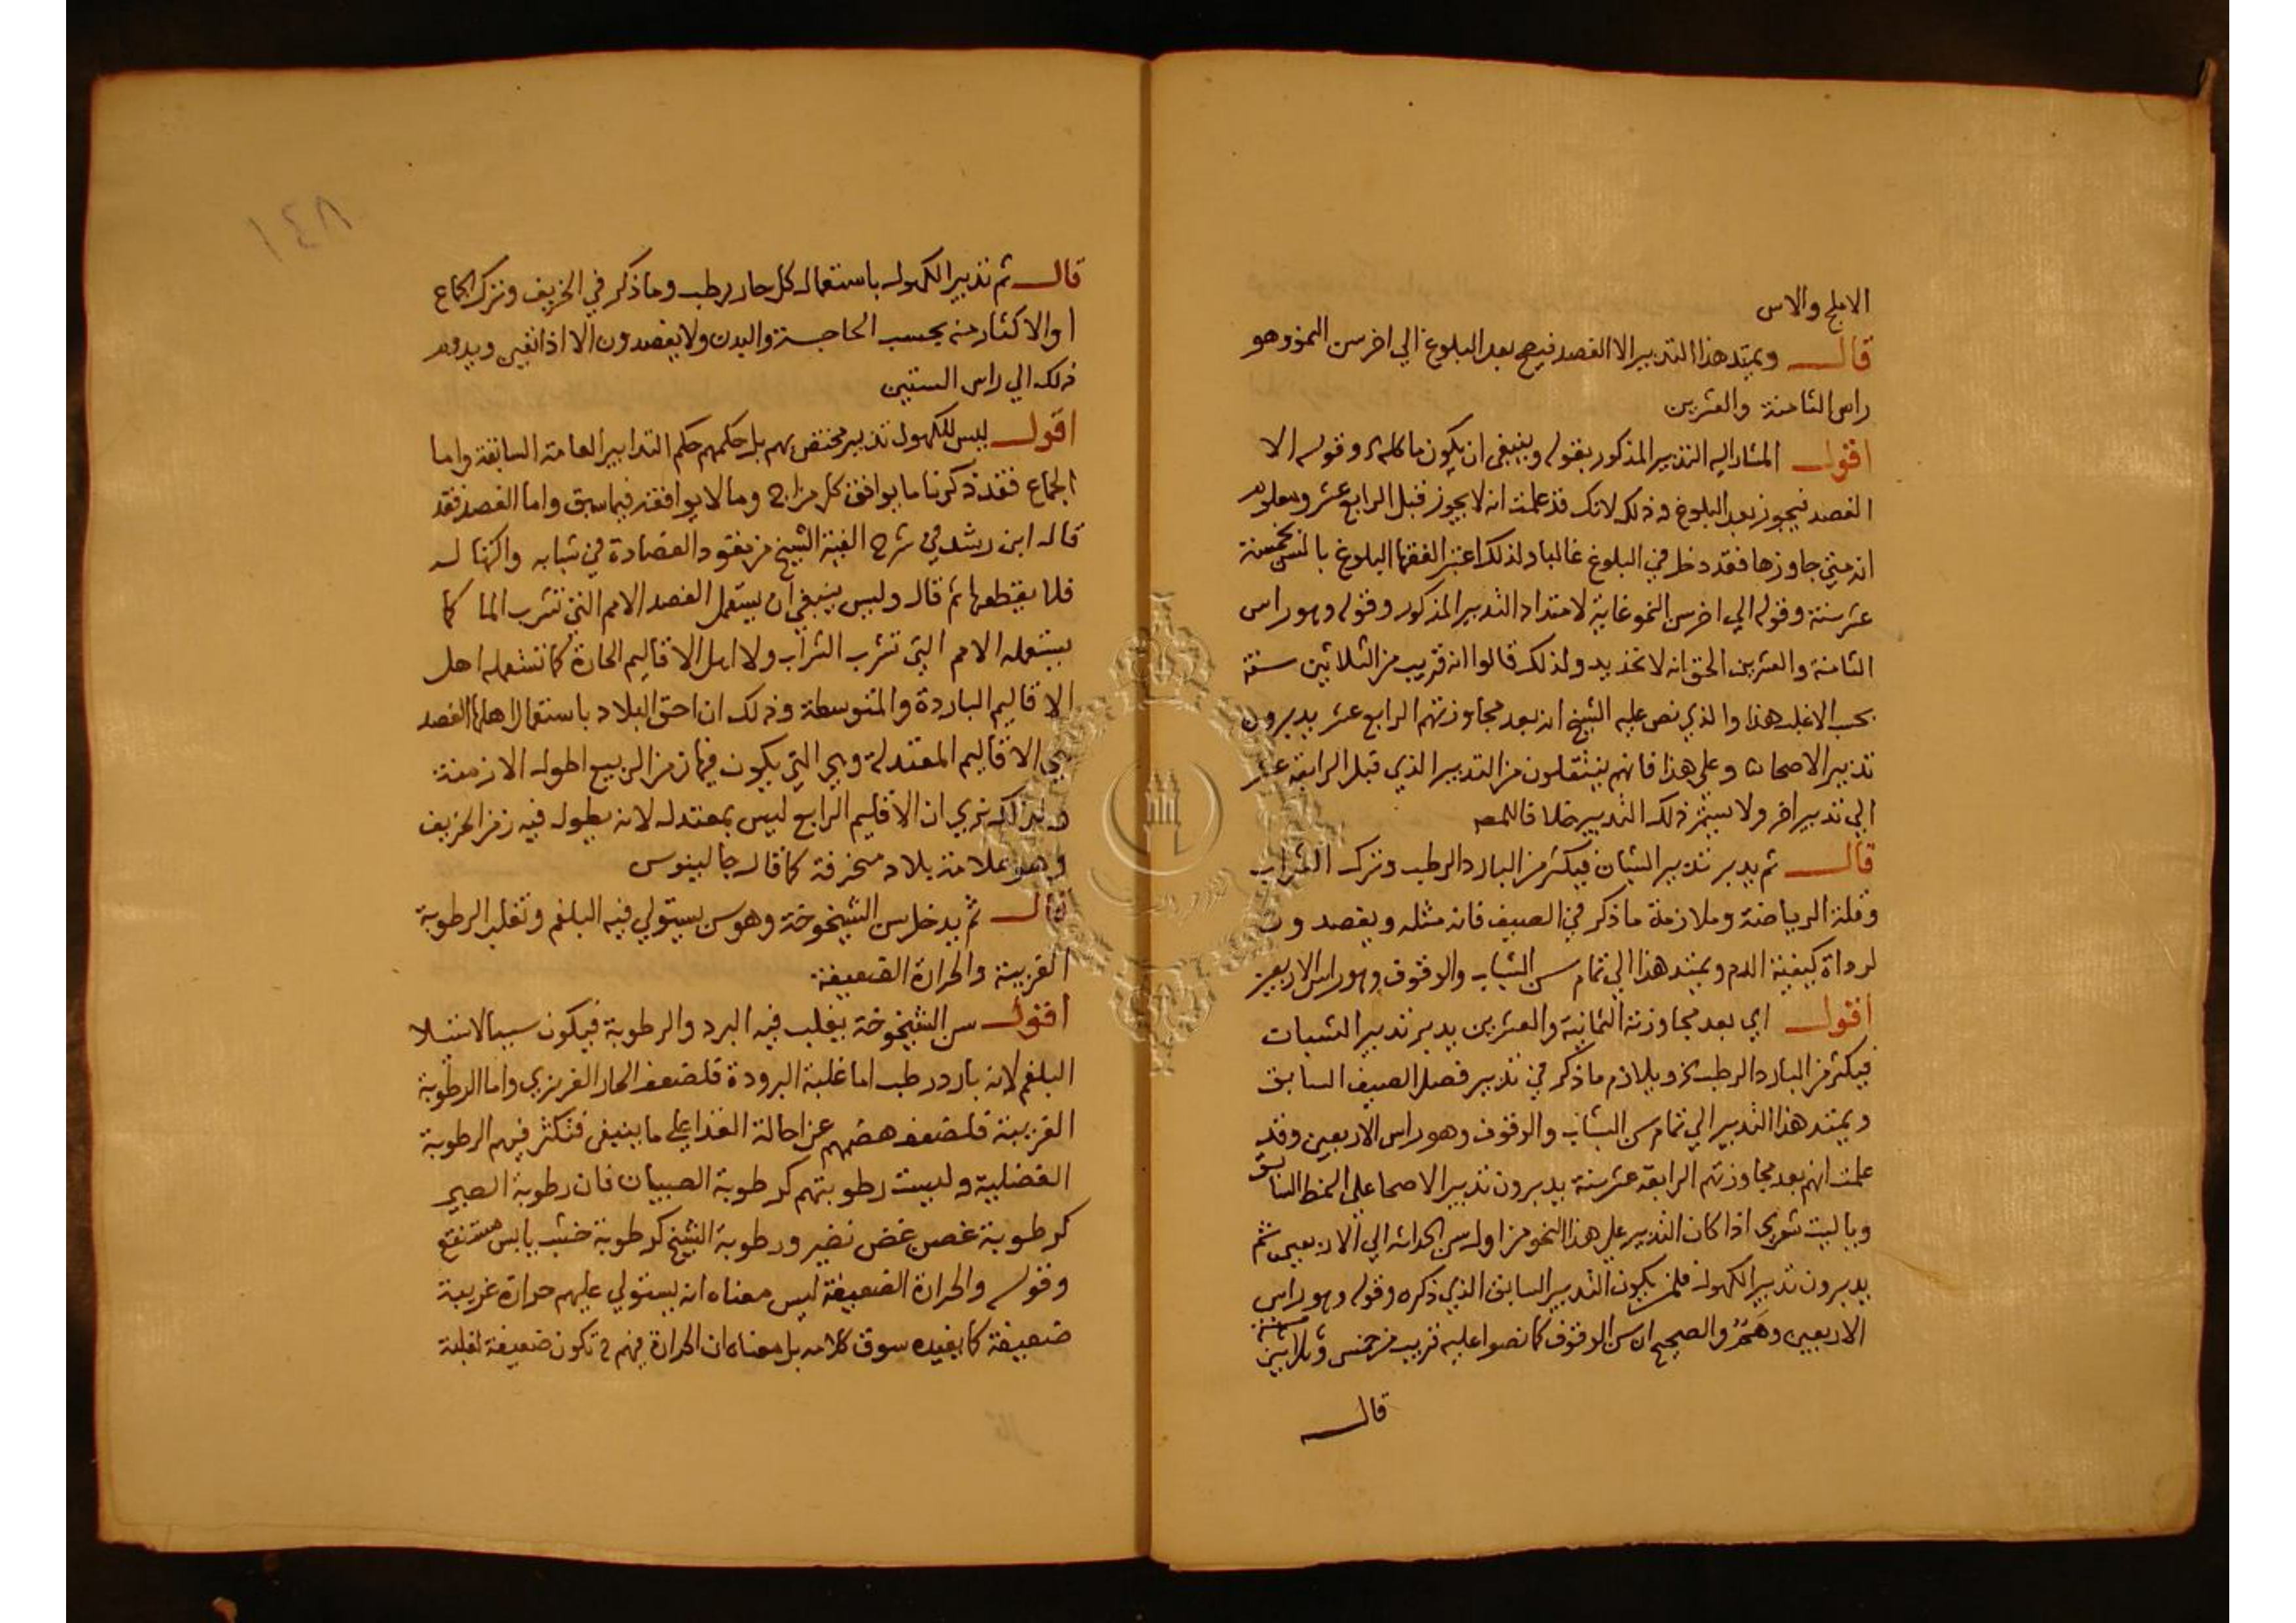 الاملج والاس
قال ويمتد هذا التدبير الا الفصد فيصح بعد البلوغ الي اخر سن النمو وهو
راس الثامنة والعشرين
اقول المشار اليه التدبير المذكور بقوله وينبغي ان يكون ماكله وقوله الا
الفصد فيجوز بعد البلوغ وذلك لانك قد علمت انه لا يجوز قبل الرابع عشر ومعلوم
انه متي جاوزها فقد دخل في البلوغ غالبا ولذلك اعتبر الفقها البلوغ بالسن بخمسة
عشر سنة وقوله الي اخر سن النمو غاية لامتداد التدبير المذكور وقوله وهو راس
الثامنة والعشرين الحق انه لا تحديد ولذلك قالوا انه قريب من الثلاثين سنة
بحسب الاغلب هذا والذي نص عليه الشيخ انه بعد مجاوزتهم الرابع عشر يدبرون
تدبير الاصحا وعلي هذا فانهم ينتقلون من التدبير الذي قبل الرابعة عشر
الي تدبير اخر ولا يستمر ذلك التدبير خلافا للمص
قال ثم يدبر تدبير الشبان فيكثر من البارد الرطب وترك الشراب
وقلة الرياضة وملازمة ما ذكر في الصيف فانه مثله ويفصدون
لرداة كيفية الدم ويمتد هذا الي تمام سن الشباب والوقوف وهو راس الاربعين
اقول اي بعد مجاوزته الثمانية والعشرين يدبر تدبير الشبان
فيكثر من البارد الرطب ويلازم ما ذكر في تدبير فصل الصيف السابق
ويمتد هذا التدبير الي تمام سن الشباب والوقوف وهو راس الاربعين وقد
علمت انهم بعد مجاوزتهم الرابعة عشر سنة يدبرون تدبير الاصحا علي النمط السابق
وياليت شعري اذا كان التدبير علي هذا النحو من اول سن الحداثه الي الاربعين ثم
يدبرون تدبير الكهول فلمن يكون التدبير السابق الذي ذكره وقوله وهو راس
الاربعين وهم والصحيح ان سن الوقوف كما نصوا عليه قريب من خمس وثلاثين سنة
قال
١٤٨
قال ثم تدبير الكهول باستعمال كل حار رطب وما ذكر في الخريف وترك الجماع
او الاكثار منه بحسب الحاجة والبدن ولا يفصدون الا اذا تعين ويدوم
ذلك الي راس الستين
اقول ليس للكهول تدبير مختص بهم بل حكمهم حكم التدابير العامة السابقة واما
الجماع فقد ذكرنا ما يوافق كل مزاج وما لا يوافقه فيما سبق واما الفصد فقد
قال ابن رشد في شرح الفية الشيخ من يعتود الفصادة في شبابه واكتهاله
فلا يقطعها ثم قال وليس ينبغي ان يستعمل الفصد الامم التي تشرب الما كما
يستعمله الامم التي تشرب الشراب ولا اهل الاقاليم الحارة كما تستعمله اهل
الاقاليم الباردة والمتوسطة وذلك ان احق البلاد باستعمال اهلها الفصد
هي الاقاليم المعتدلة وهي التي يكون فيها زمن الربيع اطول الازمنة
ولذلك نري ان الاقليم الرابع ليس بمعتدل لانه يطول فيه زمن الخريف
وهو علامة بلاد منحرفة كما قال جالينوس
قال ثم يدخل سن الشيخوخة وهو سن يستولي فيه البلغم وتغلب الرطوبة
الغريبة والحرارة الضعيفة
اقول سن الشيخوخة يغلب فيه البرد والرطوبة فيكون سببا لاستيلا
البلغم لانه بارد رطب اما غلبة البرودة فلضعف الحار الغريزي واما الرطوبة
الغريبة فلضعف هضمهم عن احالة الغذا علي ما ينبغي فتكثر فيهم الرطوبة
الفضلية وليست رطوبتهم كرطوبة الصبيان فان رطوبة الصبي
كرطوبة غصن غض نضير ورطوبة الشيخ كرطوبة خشب يابس مستنقع
وقوله والحرارة الضعيفة ليس معناه انه يستولي عليهم حرارة غريبة
ضعيفة كما يفيده سوق كلامه بل معناه ان الحرارة فيهم تكون ضعيفة لغلبة